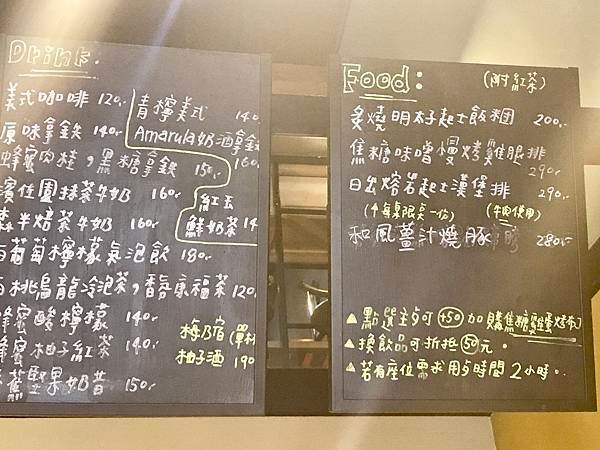 Drink:
美式咖啡 120.-
原味拿鐵 140.-
蜂蜜肉桂，黑糖拿鐵 150.-
宇治園抹茶牛奶 160.-
森半焙茶牛奶 160.-
白葡萄檸檬氣泡飲 180.-
白桃烏龍冷泡茶，香康福茶 120.
蜂蜜酸檸檬 140.-
蜂蜜柚子紅茶 140.-
香蕉堅果奶昔 150.-
青檸美式 140.
Amarula奶酒拿鐵 160.
紅玉
鮮奶茶 14
梅乃宿(單杯
柚子酒 190
Food:
(附紅茶)
炙燒明太子起士飯糰 200.-
焦糖味噌慢烤雞腿排 290.-
日出熔岩起士漢堡排 290.-
(每桌限点一份) (牛肉使用)
和風薑汁燒豚 280.-
▲點選主餐可+50加購焦糖烤布
▲換飲品可折抵50元。
▲若有座位需求用餐時間2小時。